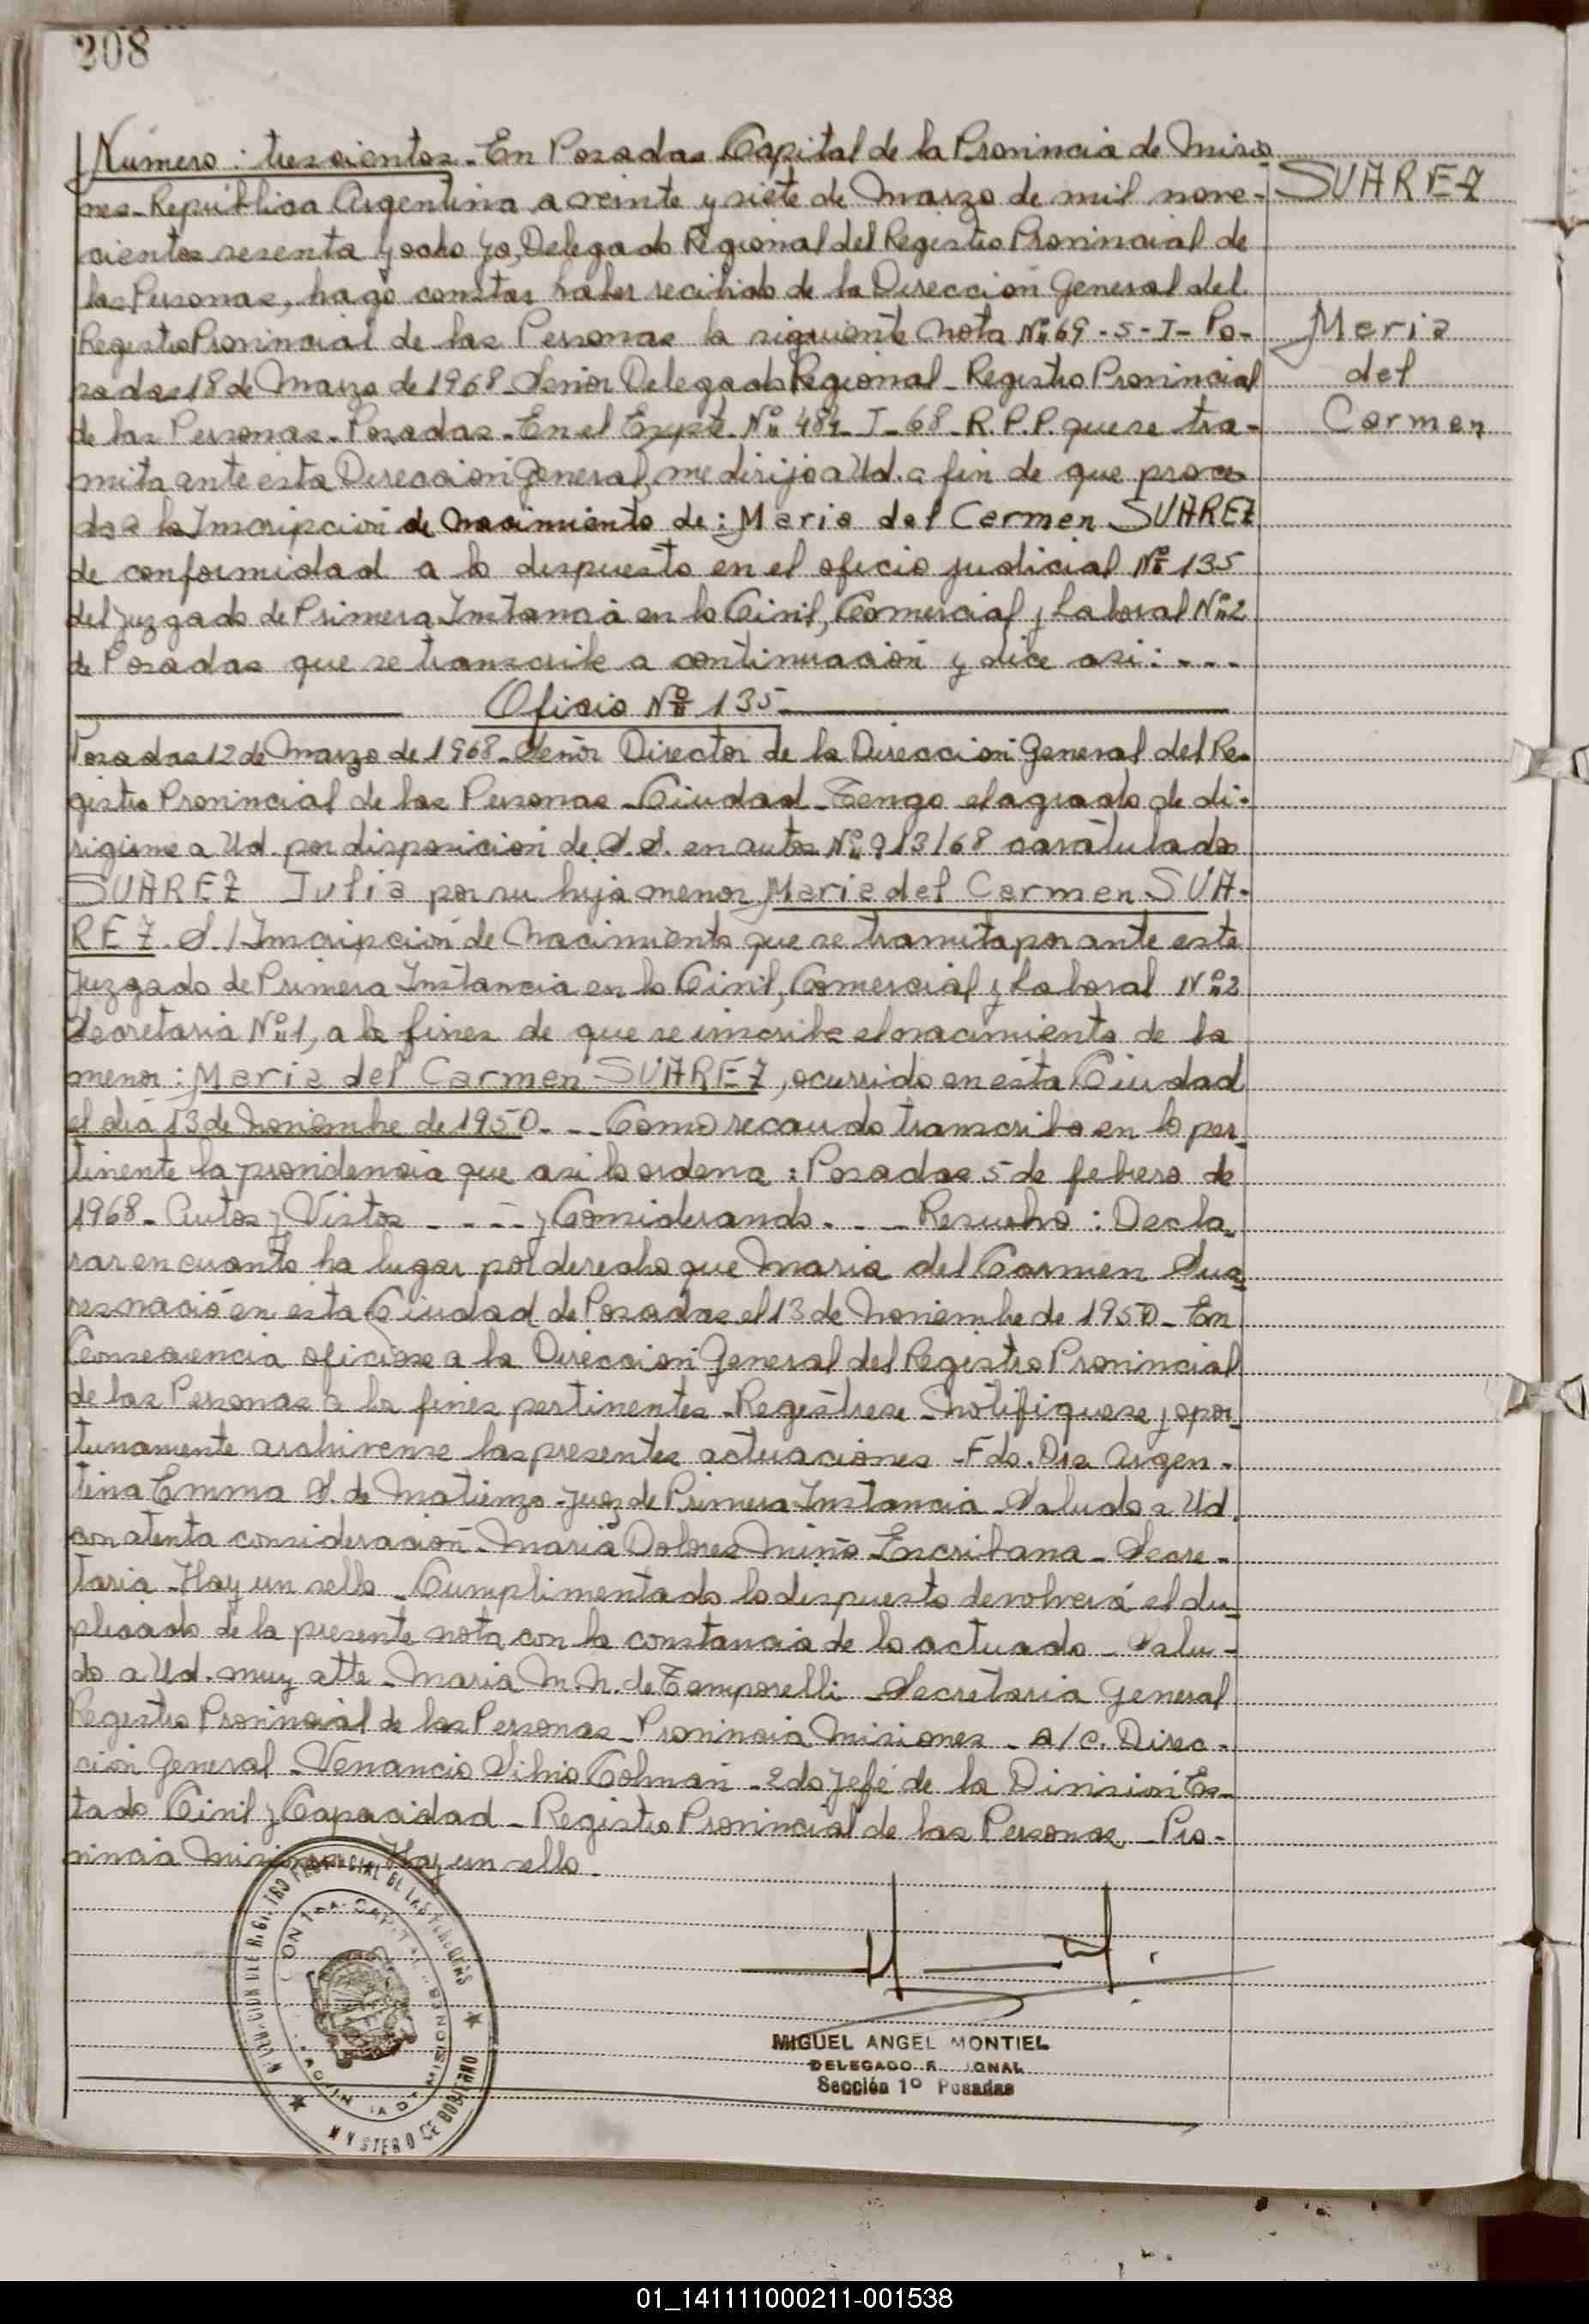 208
Número: trescientos_ En Posadas Capital de la Provincia de Misio
nes_República Argentina a veinte y siete de Marzo de mil nove-
SUAREZ
cientos sesenta y ocho yo, Delegado Regional del Registro Provincial de
las Personas, hago constar haber recibido de la Dirección General del
Registro Provincial de las Personas la siguiente Nota Nº 69-S-I- Po-
Maria
sadas 18 de Marzo de 1968_Señor Delegado Regional_Registro Provincial
del
de las Personas_Posadas_En el Expte. Nº 484_I_68_R.P.P. que se tra-
Carmen
mita ante esta Dirección General, me dirijo a Ud. a fin de que proce
da a la Inscripción de Nacimiento de: Maria del Carmen SUAREZ
de conformidad a lo dispuesto en el oficio judicial Nº 135
del Juzgado de Primera Instancia en lo Civil, Comercial y Laboral Nº 2
de Posadas que se transcribe a continuación y dice asi: - - - -
Oficio Nº 135
Posadas 12 de Marzo de 1968_Señor Director de la Dirección General del Re-
gistro Provincial de las Personas_Ciudad_Tengo el agrado de di-
rigirme a Ud. por disposición de S.S. en autos Nº 913/68 caratulados
SUAREZ Julia por su hija menor Maria del Carmen SUA-
REZ. S./Inscripción de Nacimiento que se tramita por ante este
Juzgado de Primera Instancia en lo Civil, Comercial y Laboral Nº 2
Secretaria Nº 1, a los fines de que se inscriba el nacimiento de la
menor: Maria del Carmen SUAREZ, ocurrido en esta Ciudad
el día 13 de Noviembre de 1950_ _ _ Como recaudo transcribo en lo per-
tinente la providencia que asi lo ordena: Posadas 5 de febrero de
1968_Autos y Vistos _ _ _ _ y Considerando _ _ _ Resuelvo: Decla-
rar en cuanto ha lugar por derecho que Maria del Carmen Sua-
res nació en esta Ciudad de Posadas el 13 de Noviembre de 1950_ En
Consecuencia oficiese a la Dirección General del Registro Provincial
de las Personas a los fines pertinentes_Registrese_Notifiquese y opor-
tunamente archivense las presentes actuaciones_Fdo. Dra Argen-
tina Emma S. de Matienzo_Juez de Primera Instancia_Saludo a Ud.
con atenta consideración_Maria Dolores Miño_Escribana_Secre-
taria_Hay un sello_Cumplimentado lo dispuesto devolverá el du-
plicado de la presente nota con la constancia de lo actuado_Salu-
do a Ud. muy atte_Maria M.N. de Temporelli_Secretaria General
Registro Provincial de las Personas_Provincia Misiones_a/c. Direc-
ción General_Venancio Silvio Colman_2do Jefe de la División Es-
tado Civil y Capacidad_Registro Provincial de las Personas_Pro-
vincia Misiones_Hay un sello_
MIGUEL ANGEL MONTIEL
DELEGADO R IONAL
Sección 1º Posadas
01_141111000211-001538